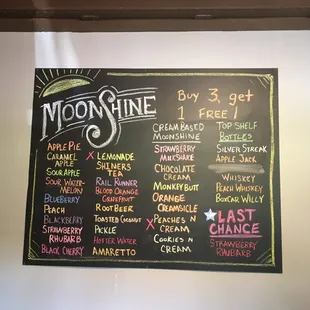 MOONSHINE
Buy 3, get
1 FREE!
APPLE PIE
CARAMEL
APPLE
SOUR APPLE
SOUR WATER-
MELON
BLUEBERRY
PEACH
BLACKBERRY
STRAWBERRY
RHUBARB
BLACK CHERRY
X LEMONADE
SHINERS
TEA
RAIL RUNNER
BLOOD ORANGE
GRAPEFRUIT
ROOT BEER
TOASTED COCONUT
PICKLE
HOTTER WATER
AMARETTO
CREAM BASED
MOONSHINE
STRAWBERRY
MILKSHAKE
CHOCOLATE
CREAM
MONKEY BUTT
ORANGE
CREAMSICLE
X PEACHES N
CREAM
COOKIES N
CREAM
TOP SHELF
BOTTLES
SILVER STREAK
APPLE JACK
WHISKEY
PEACH WHISKEY
BOXCAR WILLY
LAST
CHANCE
STRAWBERRY
RHUBARB